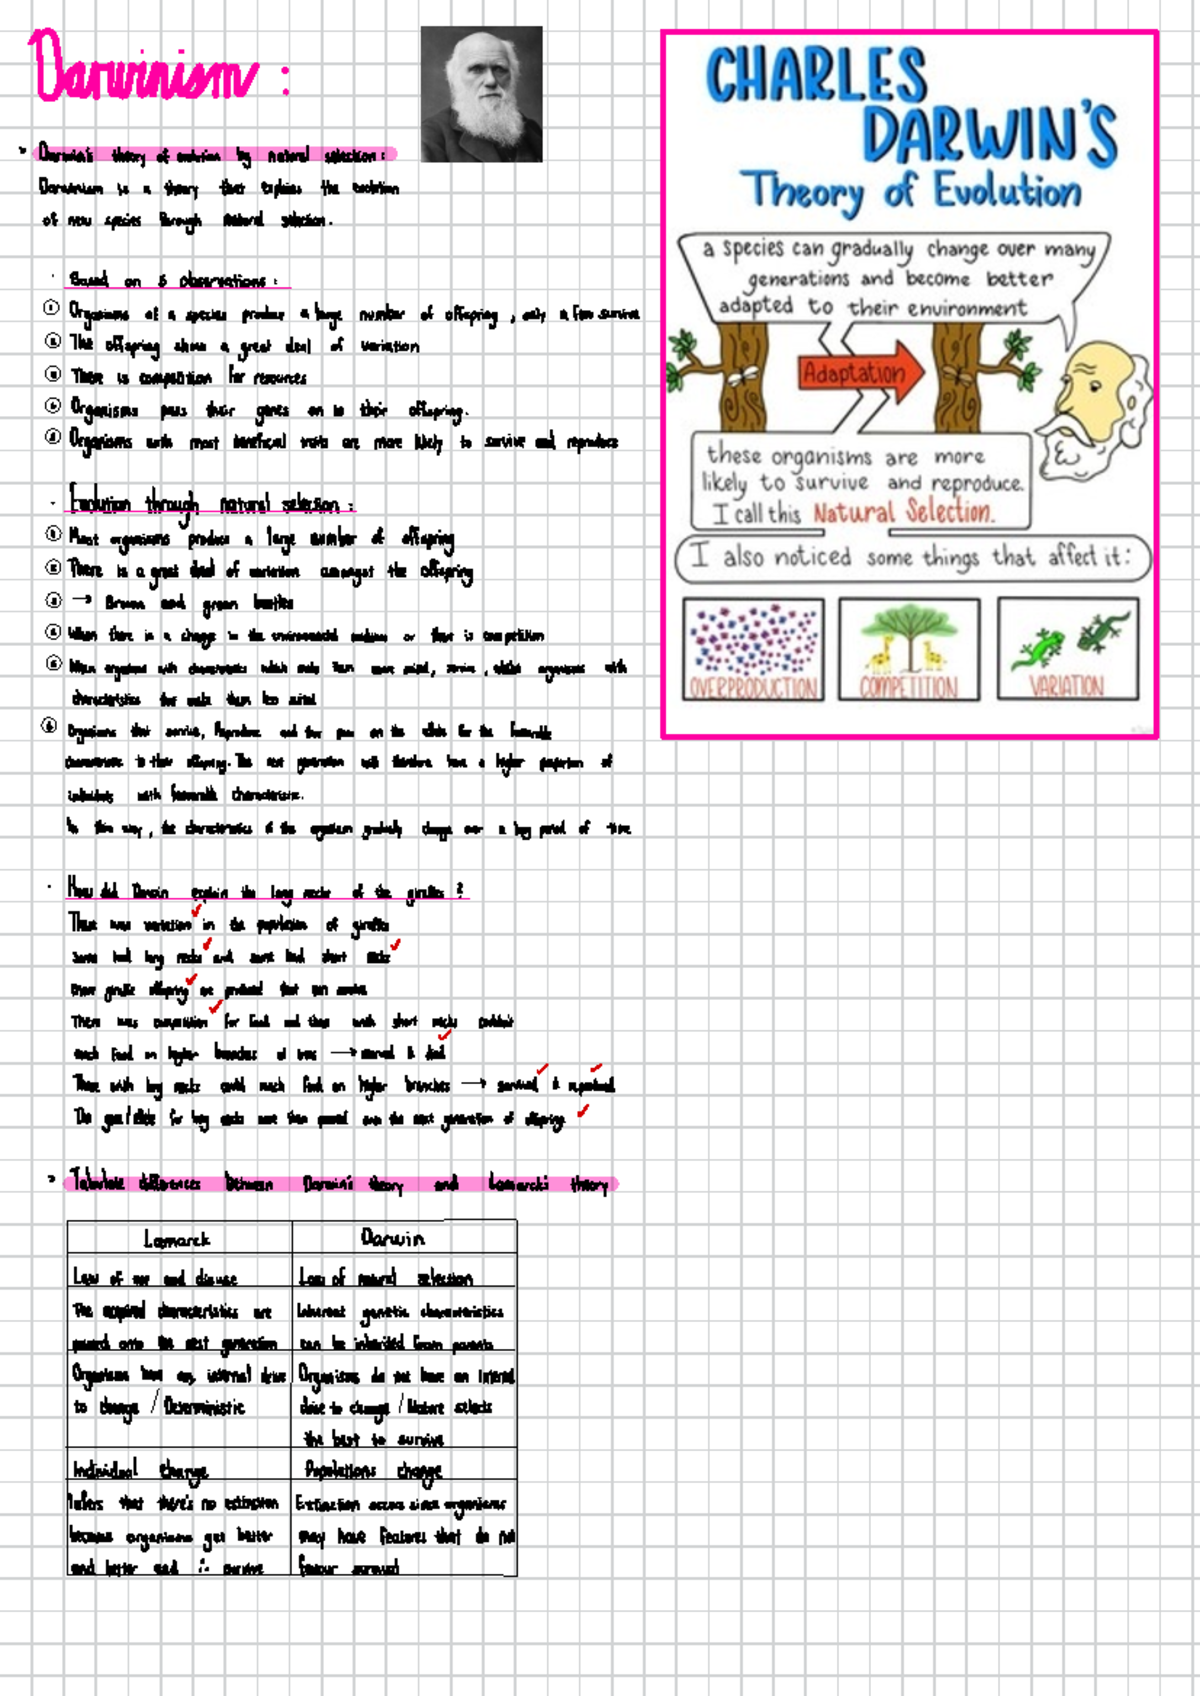 Darwinism :
Darwin's theory of evolution by natural selection:
Darwinism is a theory that explains the evolution
of new species through natural selection.
Based on 5 observations:
① Organisms of a species produce a large number of offspring, only a few survive
② The offspring show a great deal of variation
③ There is competition for resources
④ Organisms pass their genes on to their offspring.
⑤ Organisms with most beneficial traits are more likely to survive and reproduce
Evolution through natural selection:
① Most organisms produce a large number of offspring
② There is a great deal of variation amongst the offspring
③ → Brown and green beetles
④ When there is a change in the environmental or there is competition
⑤ When organisms with characteristics which make them survive, whilst organisms with
characteristics that make them less
⑥ Organisms that survive, Reproduce and thus pass on the allele for the favourable
characteristic to their offspring. The next generation will therefore have a higher proportion of
individuals with favourable characteristic.
In this way, the characteristics of the organism gradually change over a long period of time
How did Darwin explain the long necks of the giraffes?
There was variation in the population of giraffes
Some had long necks and some had short necks
More giraffe offspring are produced that can survive
There was competition for food and those with short necks couldn't
reach food on higher branches of trees → starved & died
Those with long necks could reach food on higher branches → survived & reproduced
The gene/allele for long necks were then passed onto the next generation of offspring
Tabulate differences between Darwin's theory and Lamarck's theory
Lamarck
Darwin
Law of use and disuse
Law of natural selection
The acquired characteristics are
passed onto the next generation
Inherent genetic characteristics
can be inherited from parents
Organisms have an internal drive
to change / Deterministic
Organisms do not have an internal
drive to change / Nature selects
the best to survive
Individual change
Populations change
Infers that there's no extinction
because organisms get better
and better and ∴ survive
Extinction occurs since organisms
may have features that do not
favour survival
CHARLES
DARWIN'S
Theory of Evolution
a species can gradually change over many
generations and become better
adapted to their environment
Adaptation
these organisms are more
likely to survive and reproduce.
I call this Natural Selection.
I also noticed some things that affect it:
OVERPRODUCTION
COMPETITION
VARIATION